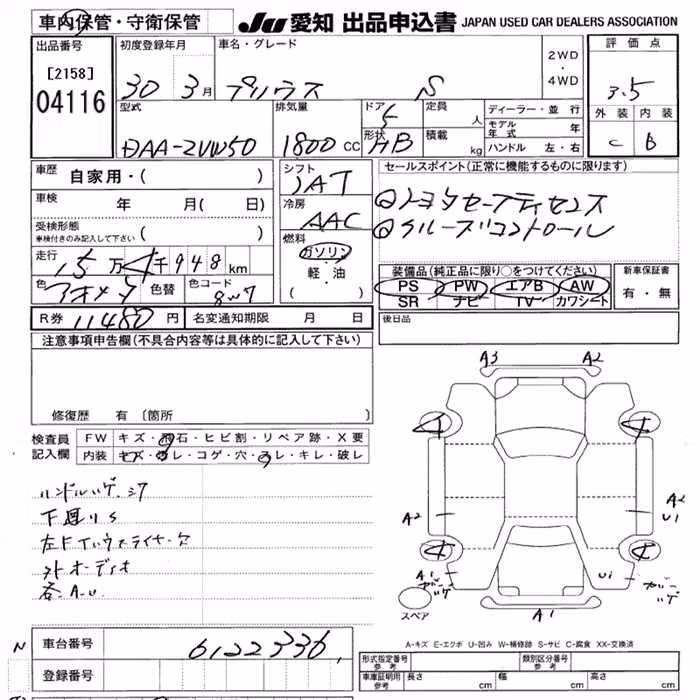 車内保管・守衛保管
JU 愛知 出品申込書 JAPAN USED CAR DEALERS ASSOCIATION
出品番号
[2158]
04116
初度登録年月
30 3月
車名・グレード
プリウス S
2WD
・
4WD
評価点
3.5
外装 内装
C B
型式
DAA-ZVW50
排気量
1800 CC
ドア
5
形状
HB
定員
人
積載
kg
ディーラー・並行
モデル年式 年
ハンドル 左・右
車歴
自家用・( )
車検 年 月( 日)
受検形態
車検付きのみ記入して下さい ( )
走行
15万4千948km
色 色替 色コード
R券 11480円 名変通知期限 月 日
シフト
IAT
冷房
AAC
燃料
ガソリン
・
軽・油
( )
セールスポイント(正常に機能するものに限ります)
トヨタセーフティセンス
クルーズコントロール
装備品(純正品に限り○をつけてください)
PS PW エアB AW
SR ナビ TV カワシート
新車保証書
有・無
後日品
注意事項申告欄(不具合内容等は具体的に記入して下さい)
修復歴 有 〔箇所 〕
検査員記入欄
FW キズ・飛石・ヒビ割・リペア跡・X要
内装 キズ・ヨゴレ・コゲ・穴・スレ・キレ・破レ
ハンドルハゲ、シワ
下廻りS
外オーディオ
各A.U
A3 A2
A2
A2
U1
A1
U1
A1
スペア
A-キズ E-エクボ U-凹み W-補修跡 S-サビ C-腐食 XX-交換済
N 車台番号 6122336
登録番号
形式指定番号 参考
類別区分番号 参考
車庫証明用 参考 長さ cm 幅 cm 高さ cm